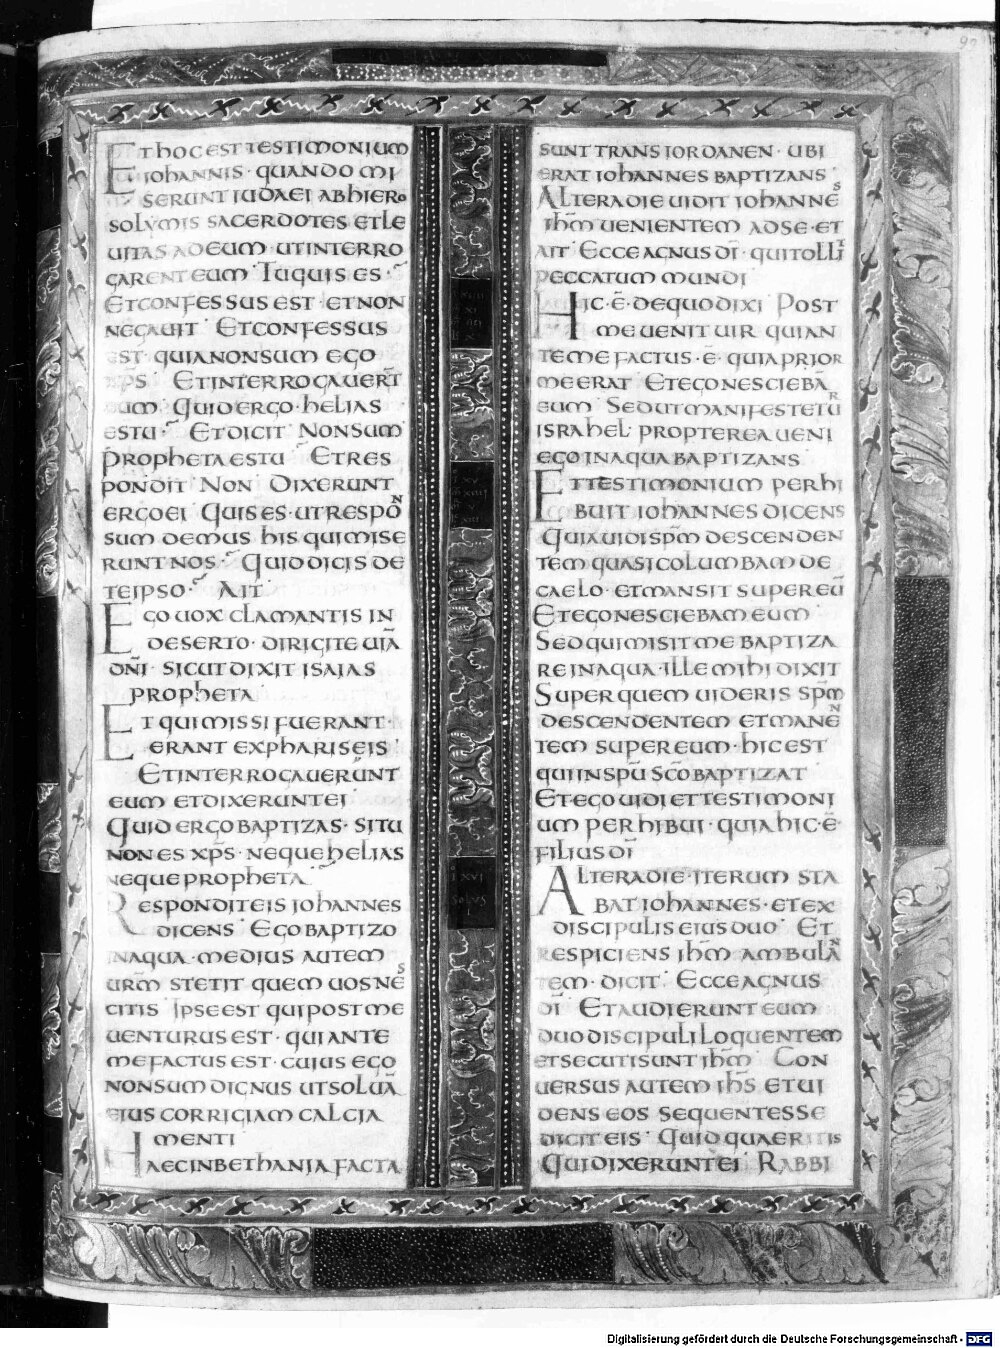 ET HOC EST TESTIMONIUM
IOHANNIS · QUANDO MI
SERUNT IUDAEI AB HIERO
SOLYMIS SACERDOTES ET LE
UITAS AD EUM · UT INTERRO
GARENT EUM · TU QUIS ES ·
ET CONFESSUS EST · ET NON
NEGAUIT · ET CONFESSUS
EST · QUIA NON SUM EGO
XP̅S · ET INTERROGAUERT̅
EUM · QUID ERGO · HELIAS
ES TU · ET DICIT NON SUM
PROPHETA ES TU · ET RES
PONDIT NON · DIXERUNT
ERGO EI · QUIS ES · UT RESPON
SUM DEMUS HIS QUI MISE
RUNT NOS · QUID DICIS DE
TE IPSO · AIT
EGO UOX CLAMANTIS IN
DESERTO · DIRIGITE UIA̅
DN̅I · SICUT DIXIT ISAIAS
PROPHETA ·
ET QUI MISSI FUERANT ·
ERANT EX PHARISEIS ·
ET INTERROGAUERUNT
EUM ET DIXERUNT EI
QUID ERGO BAPTIZAS · SI TU
NON ES XP̅S · NEQUE HELIAS
NEQUE PROPHETA
RESPONDIT EIS IOHANNES
DICENS · EGO BAPTIZO
IN AQUA · MEDIUS AUTEM
UR̅M STETIT QUEM UOS NES
CITIS · IPSE EST QUI POST ME
UENTURUS EST · QUI ANTE
ME FACTUS EST · CUIUS EGO
NON SUM DIGNUS UT SOLUA̅
EIUS CORRIGIAM CALCIA
MENTI
HAEC IN BETHANIA FACTA
XVI
SOLUS
SUNT TRANS IORDANEN · UBI
ERAT IOHANNES BAPTIZANS ·
ALTERA DIE UIDIT IOHANNES
IH̅M UENIENTEM AD SE · ET
AIT · ECCE AGNUS DI̅ · QUI TOLLIT
PECCATUM MUNDI
HIC · E̅ · DE QUO DIXI · POST
ME UENIT UIR QUI AN
TE ME FACTUS · E̅ · QUIA PRIOR
ME ERAT · ET EGO NESCIEBA̅
EUM · SED UT MANIFESTETUR
ISRAHEL · PROPTEREA UENI
EGO IN AQUA BAPTIZANS
ET TESTIMONIUM PERHI
BUIT IOHANNES DICENS
QUIA UIDI SPM̅ DESCENDEN
TEM QUASI COLUMBAM DE
CAELO · ET MANSIT SUPER EU̅
ET EGO NESCIEBAM EUM
SED QUI MISIT ME BAPTIZA
RE IN AQUA · ILLE MIHI DIXIT
SUPER QUEM UIDERIS SPM̅
DESCENDENTEM ET MANEN
TEM SUPER EUM · HIC EST
QUI IN SPU̅ SC̅O BAPTIZAT
ET EGO UIDI ET TESTIMONI
UM PERHIBUI · QUIA HIC · E̅ ·
FILIUS DI̅
ALTERA DIE · ITERUM STA
BAT IOHANNES · ET EX
DISCIPULIS EIUS DUO · ET
RESPICIENS IH̅M AMBULAN
TEM · DICIT · ECCE AGNUS
DI̅ · ET AUDIERUNT EUM
DUO DISCIPULI LOQUENTEM
ET SECUTI SUNT IH̅M · CON
UERSUS AUTEM IH̅S ET UI
DENS EOS SEQUENTES SE
DICIT EIS · QUID QUAERITIS
QUI DIXERUNT EI · RABBI
Digitalisierung gefördert durch die Deutsche Forschungsgemeinschaft - DFG